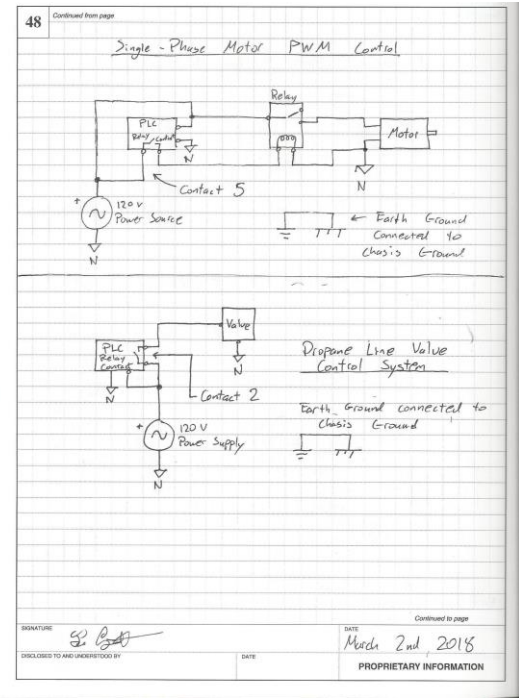 48
Continued from page
Single-Phase Motor PWM Control
Relay
PLC
Relay Contact
Motor
N
N
Contact 5
+
120 V
Power Source
N
Earth Ground
Connected to
Chasis Ground
Valve
PLC
Relay
Contact
N
N
Contact 2
Propane Line Valve
Control System
+
120 V
Power Supply
N
Earth Ground connected to
Chasis Ground
Continued to page
SIGNATURE
DATE
March 2nd, 2018
DISCLOSED TO AND UNDERSTOOD BY
DATE
PROPRIETARY INFORMATION